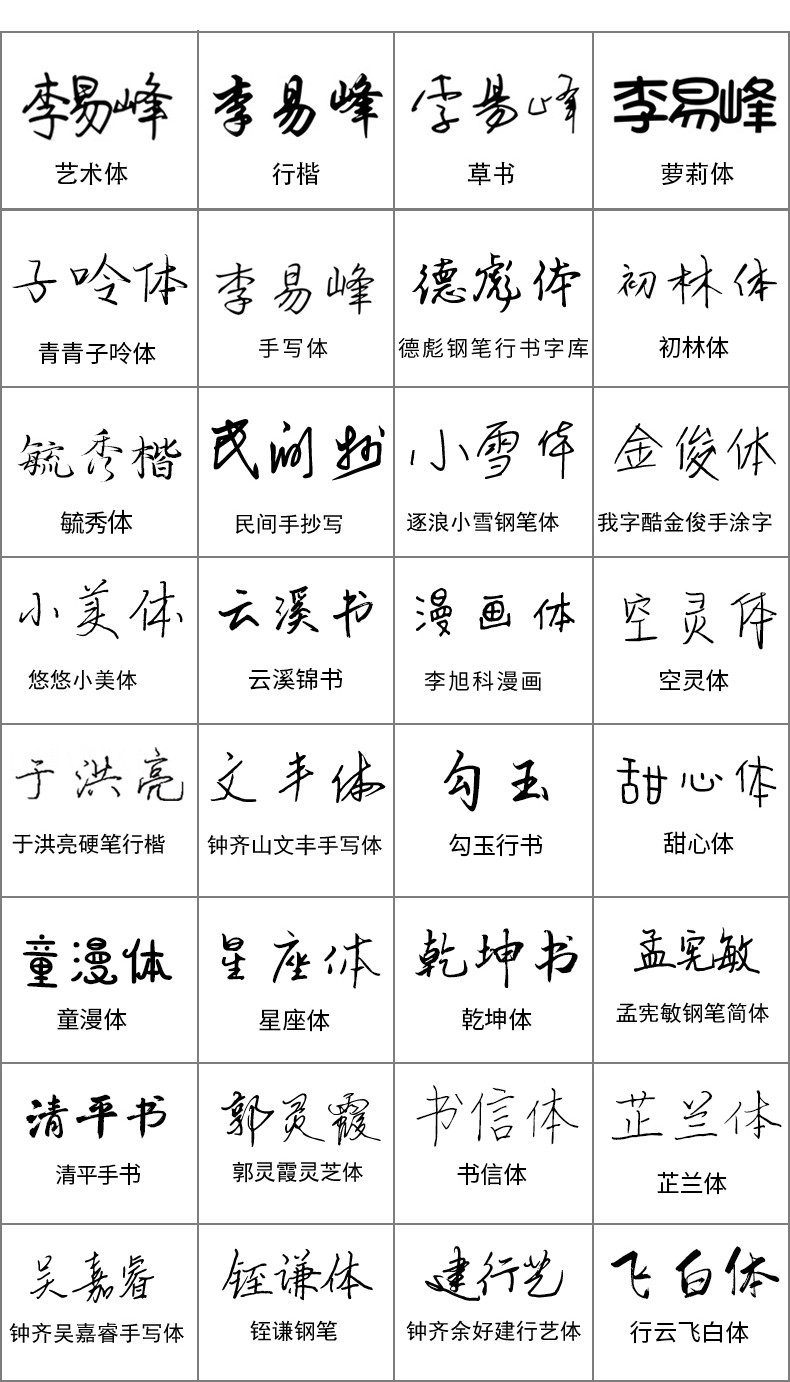 李易峰 李易峰 李易峰 李易峰
艺术体 行楷 草书 萝莉体
子呤体 李易峰 德彪体 初林体
青青子呤体 手写体 德彪钢笔行书字库 初林体
毓秀楷 民间抄 小雪体 金俊体
毓秀体 民间手抄写 逐浪小雪钢笔体 我字酷金俊手涂字
小美体 云溪书 漫画体 空灵体
悠悠小美体 云溪锦书 李旭科漫画 空灵体
于洪亮 文丰体 勾玉 甜心体
于洪亮硬笔行楷 钟齐山文丰手写体 勾玉行书 甜心体
童漫体 星座体 乾坤书 孟宪敏
童漫体 星座体 乾坤体 孟宪敏钢笔简体
清平书 郭灵霞 书信体 芷兰体
清平手书 郭灵霞灵芝体 书信体 芷兰体
吴嘉睿 铚谦体 建行艺 飞白体
钟齐吴嘉睿手写体 铚谦钢笔 钟齐余好建行艺体 行云飞白体